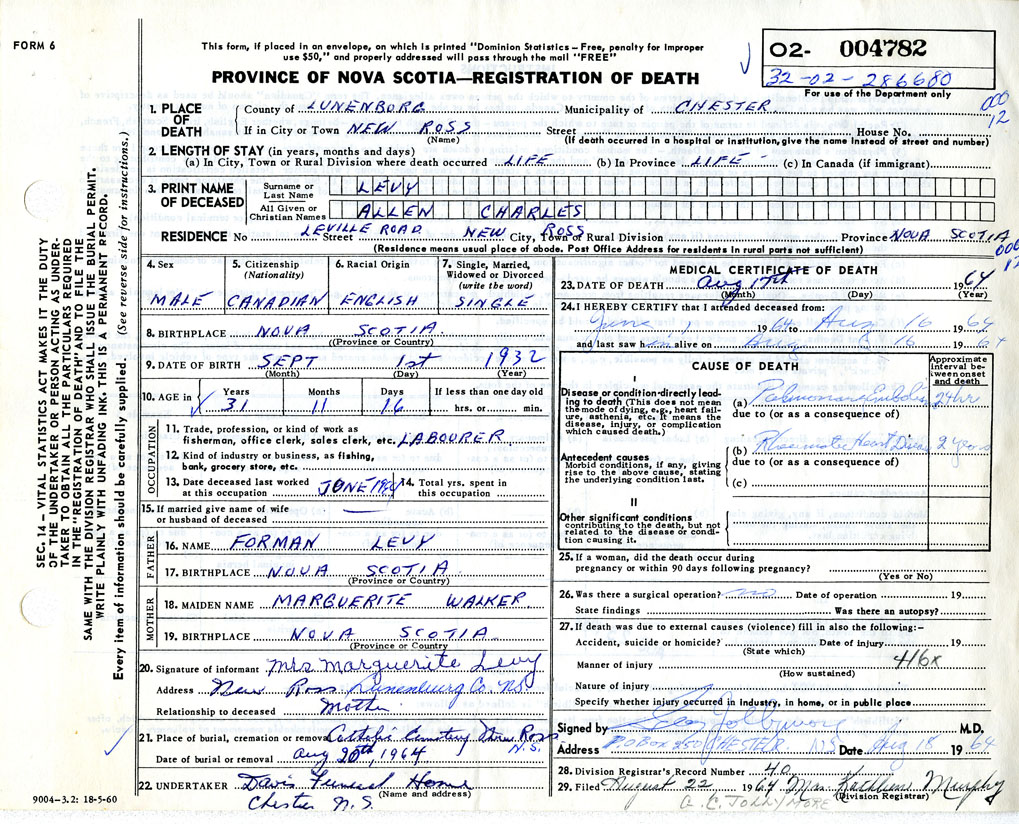 FORM 6
This form, if placed in an envelope, on which is printed "Dominion Statistics – Free, penalty for improper
use $50," and properly addressed will pass through the mail "FREE"
PROVINCE OF NOVA SCOTIA—REGISTRATION OF DEATH
O2- 004782
32-02-286680
For use of the Department only
000
12
1. PLACE OF DEATH
County of LUNENBORG Municipality of CHESTER
If in City or Town NEW ROSS Street House No.
(Name) (If death occurred in a hospital or institution, give the name instead of street and number)
2. LENGTH OF STAY (in years, months and days)
(a) In City, Town or Rural Division where death occurred LIFE (b) In Province LIFE - (c) In Canada (if immigrant)
3. PRINT NAME OF DECEASED
Surname or Last Name LEVY
All Given or Christian Names ALLEN CHARLES
RESIDENCE No LEVILLE ROAD Street NEW ROSS City, Town or Rural Division Province NOVA SCOTIA
(Residence means usual place of abode. Post Office Address for residents in rural parts not sufficient)
000
12
4. Sex MALE
5. Citizenship (Nationality) CANADIAN
6. Racial Origin ENGLISH
7. Single, Married, Widowed or Divorced (write the word) SINGLE
8. BIRTHPLACE NOVA SCOTIA
(Province or Country)
9. DATE OF BIRTH SEPT 1st 1932
(Month) (Day) (Year)
10. AGE in Years 31 Months 11 Days 16 If less than one day old hrs. or min.
OCCUPATION
11. Trade, profession, or kind of work as
fisherman, office clerk, sales clerk, etc. LABOURER
12. Kind of industry or business, as fishing,
bank, grocery store, etc
13. Date deceased last worked at this occupation JUNE 1964
14. Total yrs. spent in this occupation
15. If married give name of wife
or husband of deceased —
FATHER
16. NAME FORMAN LEVY
17. BIRTHPLACE NOVA SCOTIA
(Province or Country)
MOTHER
18. MAIDEN NAME MARGUERITE WALKER
19. BIRTHPLACE NOVA SCOTIA
(Province or Country
20. Signature of informant Mrs Marguerite Levy
Address New Ross Lunenburg Co. NS
Relationship to deceased Mother
21. Place of burial, cremation or removal Catholic Cemetery New Ross N.S.
Date of burial or removal Aug 20th, 1964
22. UNDERTAKER Davis Funeral Home
(Name and address)
Chester N.S.
9004-3.2: 18-5-60
SEC. 14 – VITAL STATISTICS ACT MAKES IT THE DUTY
OF THE UNDERTAKER OR PERSON ACTING AS UNDER-
TAKER TO OBTAIN ALL THE PARTICULARS REQUIRED
IN THE "REGISTRATION OF DEATH" AND TO FILE THE
SAME WITH THE DIVISION REGISTRAR WHO SHALL ISSUE THE BURIAL PERMIT.
WRITE PLAINLY WITH UNFADING INK. THIS IS A PERMANENT RECORD.
Every item of information should be carefully supplied. (See reverse side for instructions.)
MEDICAL CERTIFICATE OF DEATH
23. DATE OF DEATH Aug 17th 1964
(Month) (Day) (Year)
24. I HEREBY CERTIFY that I attended deceased from:
June 1 1964 to Aug 16 1964
and last saw him alive on Aug 16 1964
CAUSE OF DEATH
Approximate interval between onset and death
I
Disease or condition directly lead-
ing to death (This does not mean
the mode of dying, e.g., heart fail-
ure, asthenia, etc. It means the
disease, injury, or complication
which caused death.)
(a) Pulmonary Embolism 24 hr
due to (or as a consequence of)
Antecedent causes
Morbid conditions, if any, giving
rise to the above cause, stating
the underlying condition last.
(b) Rheumatic Heart Disease 2 years
due to (or as a consequence of)
(c)
II
Other significant conditions
contributing to the death, but not
related to the disease or condi-
tion causing it.
25. If a woman, did the death occur during
pregnancy or within 90 days following pregnancy?
(Yes or No)
26. Was there a surgical operation? no Date of operation 19
State findings Was there an autopsy?
27. If death was due to external causes (violence) fill in also the following:-
Accident, suicide or homicide? Date of injury 19
(State which)
416x
Manner of injury
(How sustained)
Nature of injury
Specify whether injury occurred in industry, in home, or in public place
Signed by M.D.
Address P.O Box 250 CHESTER NS Date Aug 18 1964
28. Division Registrar's Record Number 40
29. Filed August 22 1964 Mrs. Kathleen Murphy
(Division Registrar)